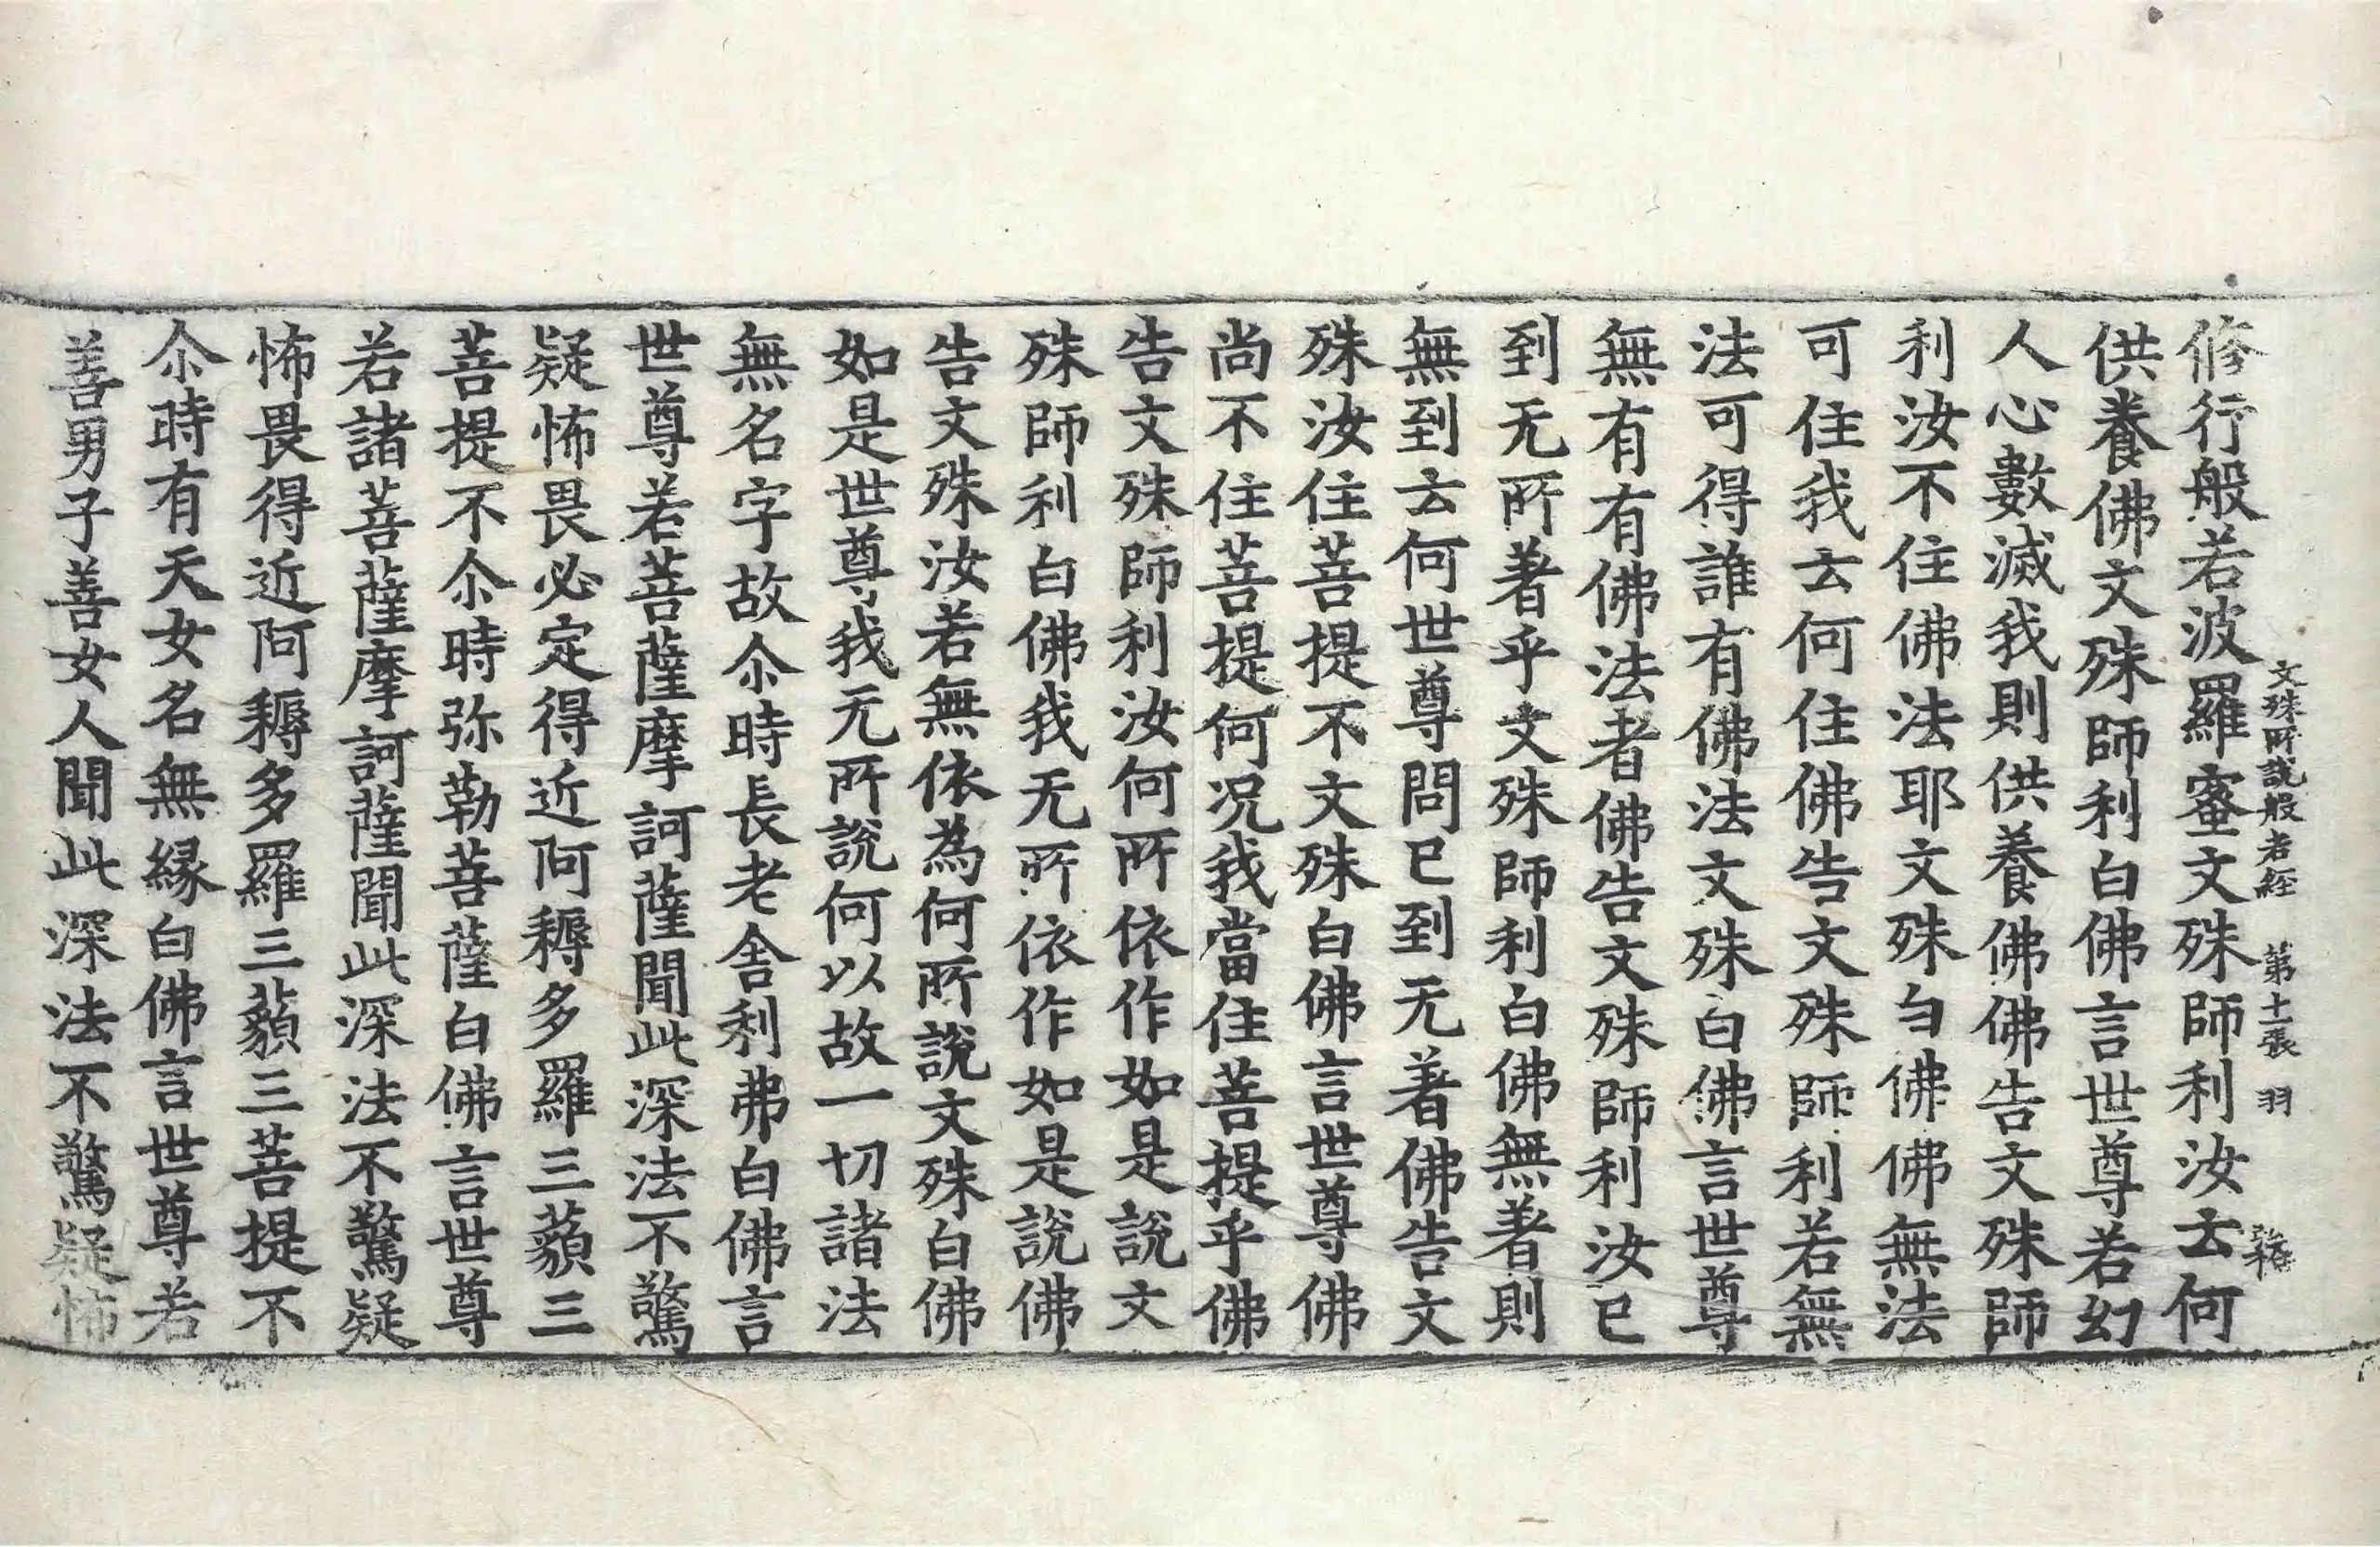 文殊所說般若經 第十一張 羽
修行般若波羅蜜文殊師利汝去何
供養佛文殊師利白佛言世尊若幻
人心數滅我則供養佛佛告文殊師
利汝不住佛法耶文殊白佛佛無法
可住我去何住佛告文殊師利若無
法可得誰有佛法文殊白佛言世尊
無有有佛法者佛告文殊師利汝已
到无所著乎文殊師利白佛無著則
無到去何世尊問已到无著佛告文
殊汝住菩提不文殊白佛言世尊佛
尚不住菩提何況我當住菩提乎佛
告文殊師利汝何所依作如是說文
殊師利白佛我无所依作如是說佛
告文殊汝若無依為何所說文殊白佛
如是世尊我无所說何以故一切諸法
無名字故尒時長老舍利弗白佛言
世尊若菩薩摩訶薩聞此深法不驚
疑怖畏必定得近阿耨多羅三藐三
菩提不尒時弥勒菩薩白佛言世尊
若諸菩薩摩訶薩聞此深法不驚疑
怖畏得近阿耨多羅三藐三菩提不
尒時有天女名無緣白佛言世尊若
善男子善女人聞此深法不驚疑怖